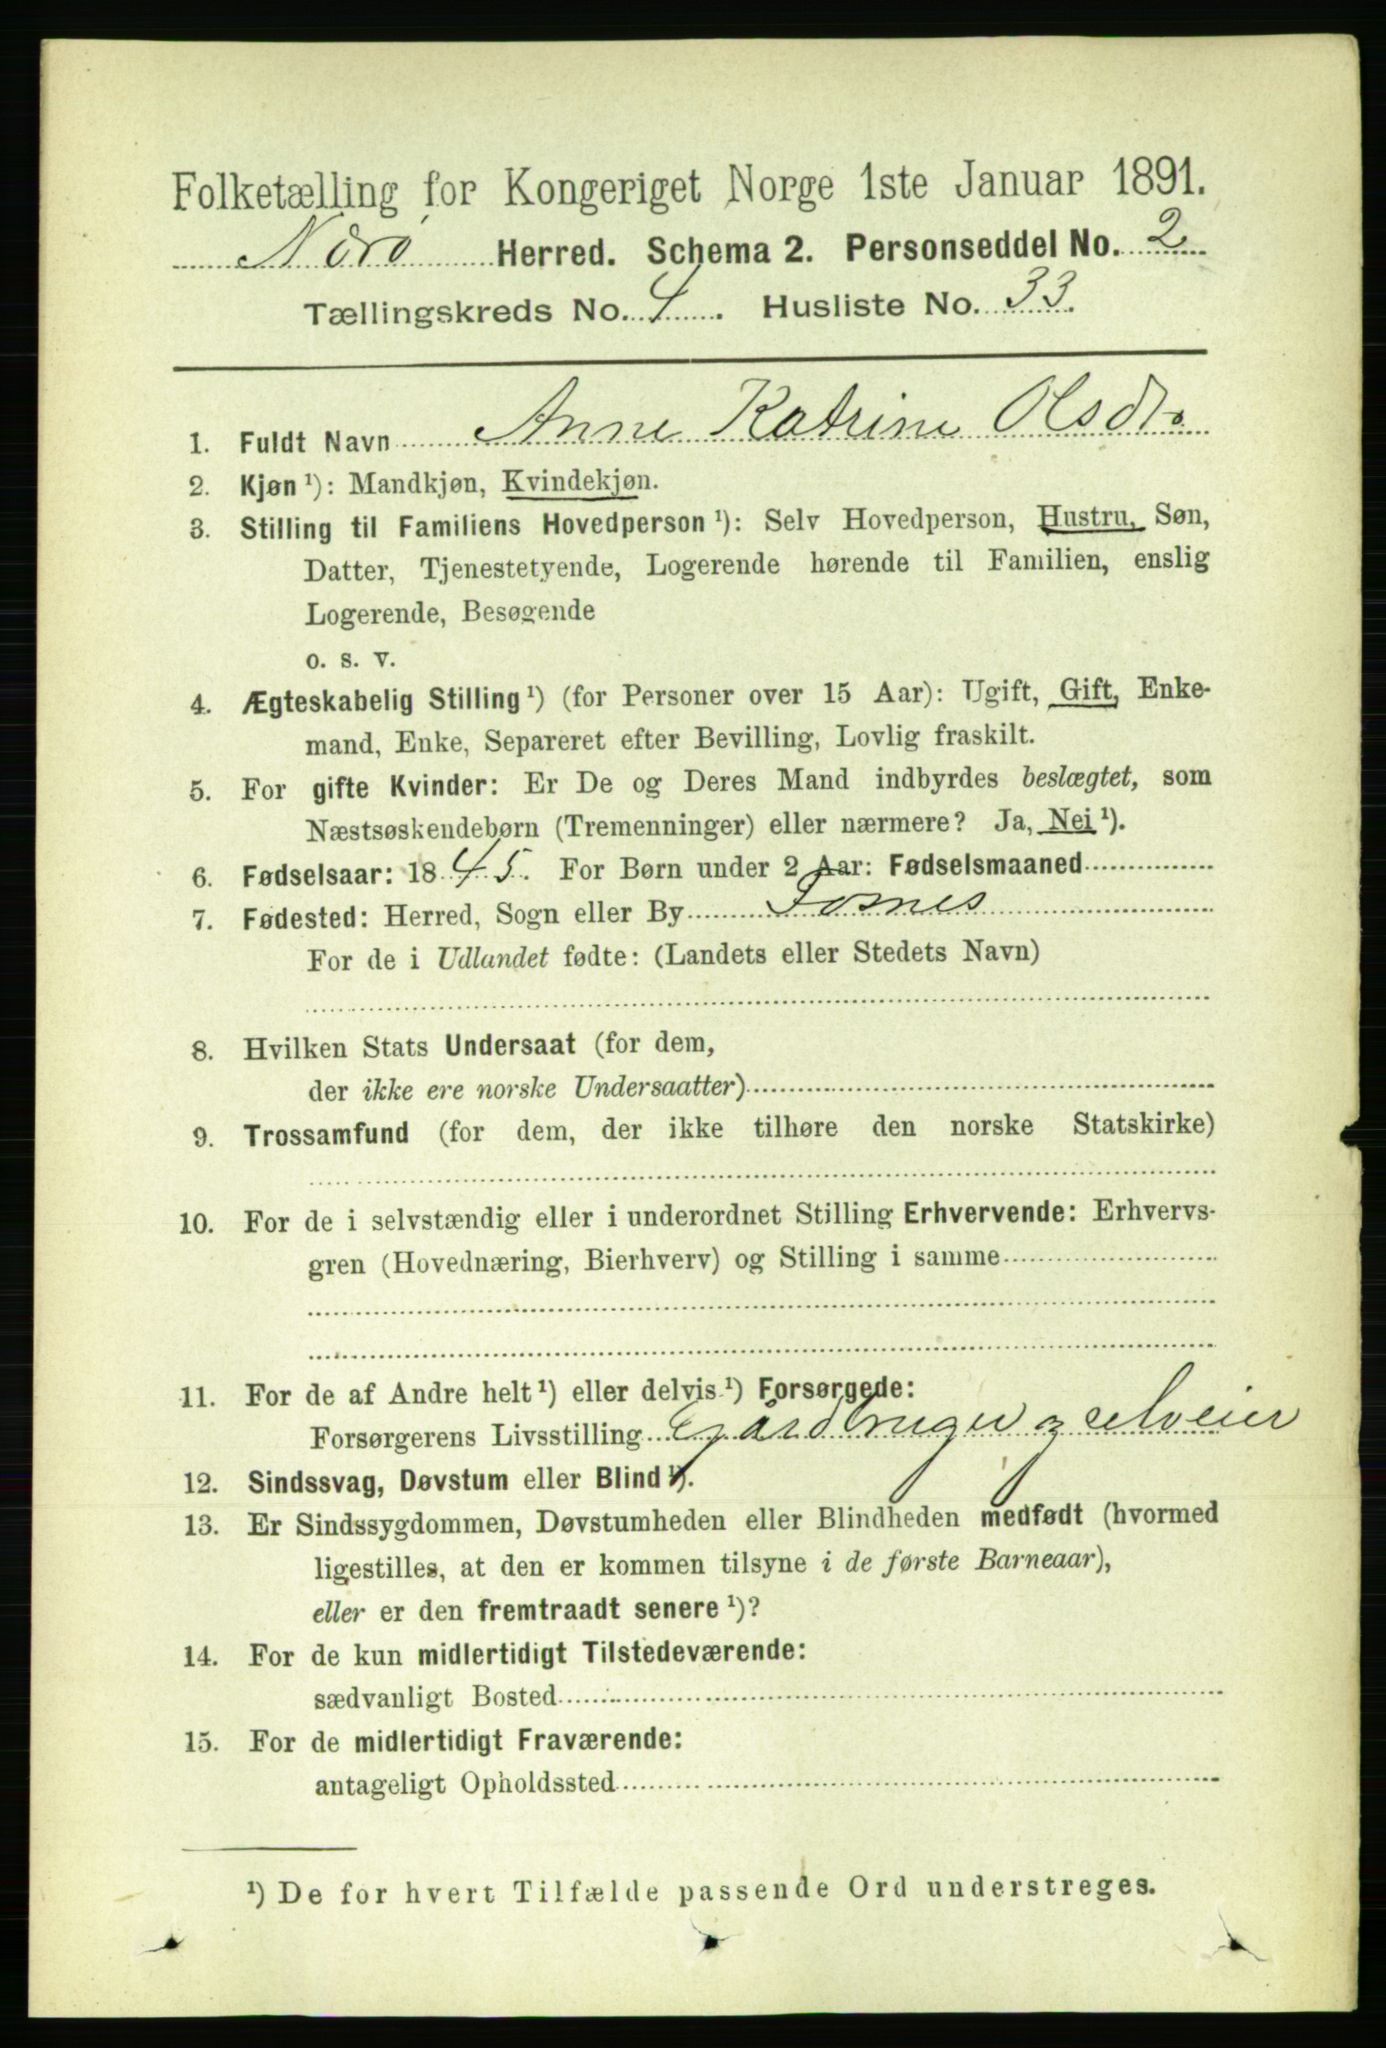 Folketælling for Kongeriget Norge 1ste Januar 1891.
Nærø Herred. Schema 2. Personseddel No. 2.
Tællingskreds No. 4. Husliste No. 33.
1. Fuldt Navn Anne Katrine Olsdtr
2. Kjøn ¹): Mandkjøn, Kvindekjøn.
3. Stilling til Familiens Hovedperson ¹): Selv Hovedperson, Hustru, Søn,
Datter, Tjenestetyende, Logerende hørende til Familien, enslig
Logerende, Besøgende
o. s. v.
4. Ægteskabelig Stilling ¹) (for Personer over 15 Aar): Ugift, Gift, Enke-
mand, Enke, Separeret efter Bevilling, Lovlig fraskilt.
5. For gifte Kvinder: Er De og Deres Mand indbyrdes beslægtet, som
Næstsøskendebørn (Tremenninger) eller nærmere? Ja, Nei ¹).
6. Fødselsaar: 1845. For Børn under 2 Aar: Fødselsmaaned
7. Fødested: Herred, Sogn eller By Fosnes
For de i Udlandet fødte: (Landets eller Stedets Navn)
8. Hvilken Stats Undersaat (for dem,
der ikke ere norske Undersaatter)
9. Trossamfund (for dem, der ikke tilhøre den norske Statskirke)
10. For de i selvstændig eller i underordnet Stilling Erhvervende: Erhvervs-
gren (Hovednæring, Bierhverv) og Stilling i samme
11. For de af Andre helt ¹) eller delvis ¹) Forsørgede:
Forsørgerens Livsstilling Gårdbruger og selveier
12. Sindssvag, Døvstum eller Blind ¹).
13. Er Sindssygdommen, Døvstumheden eller Blindheden medfødt (hvormed
ligestilles, at den er kommen tilsyne i de første Barneaar),
eller er den fremtraadt senere ¹)?
14. For de kun midlertidigt Tilstedeværende:
sædvanligt Bosted
15. For de midlertidigt Fraværende:
antageligt Opholdssted
¹) De for hvert Tilfælde passende Ord understreges.